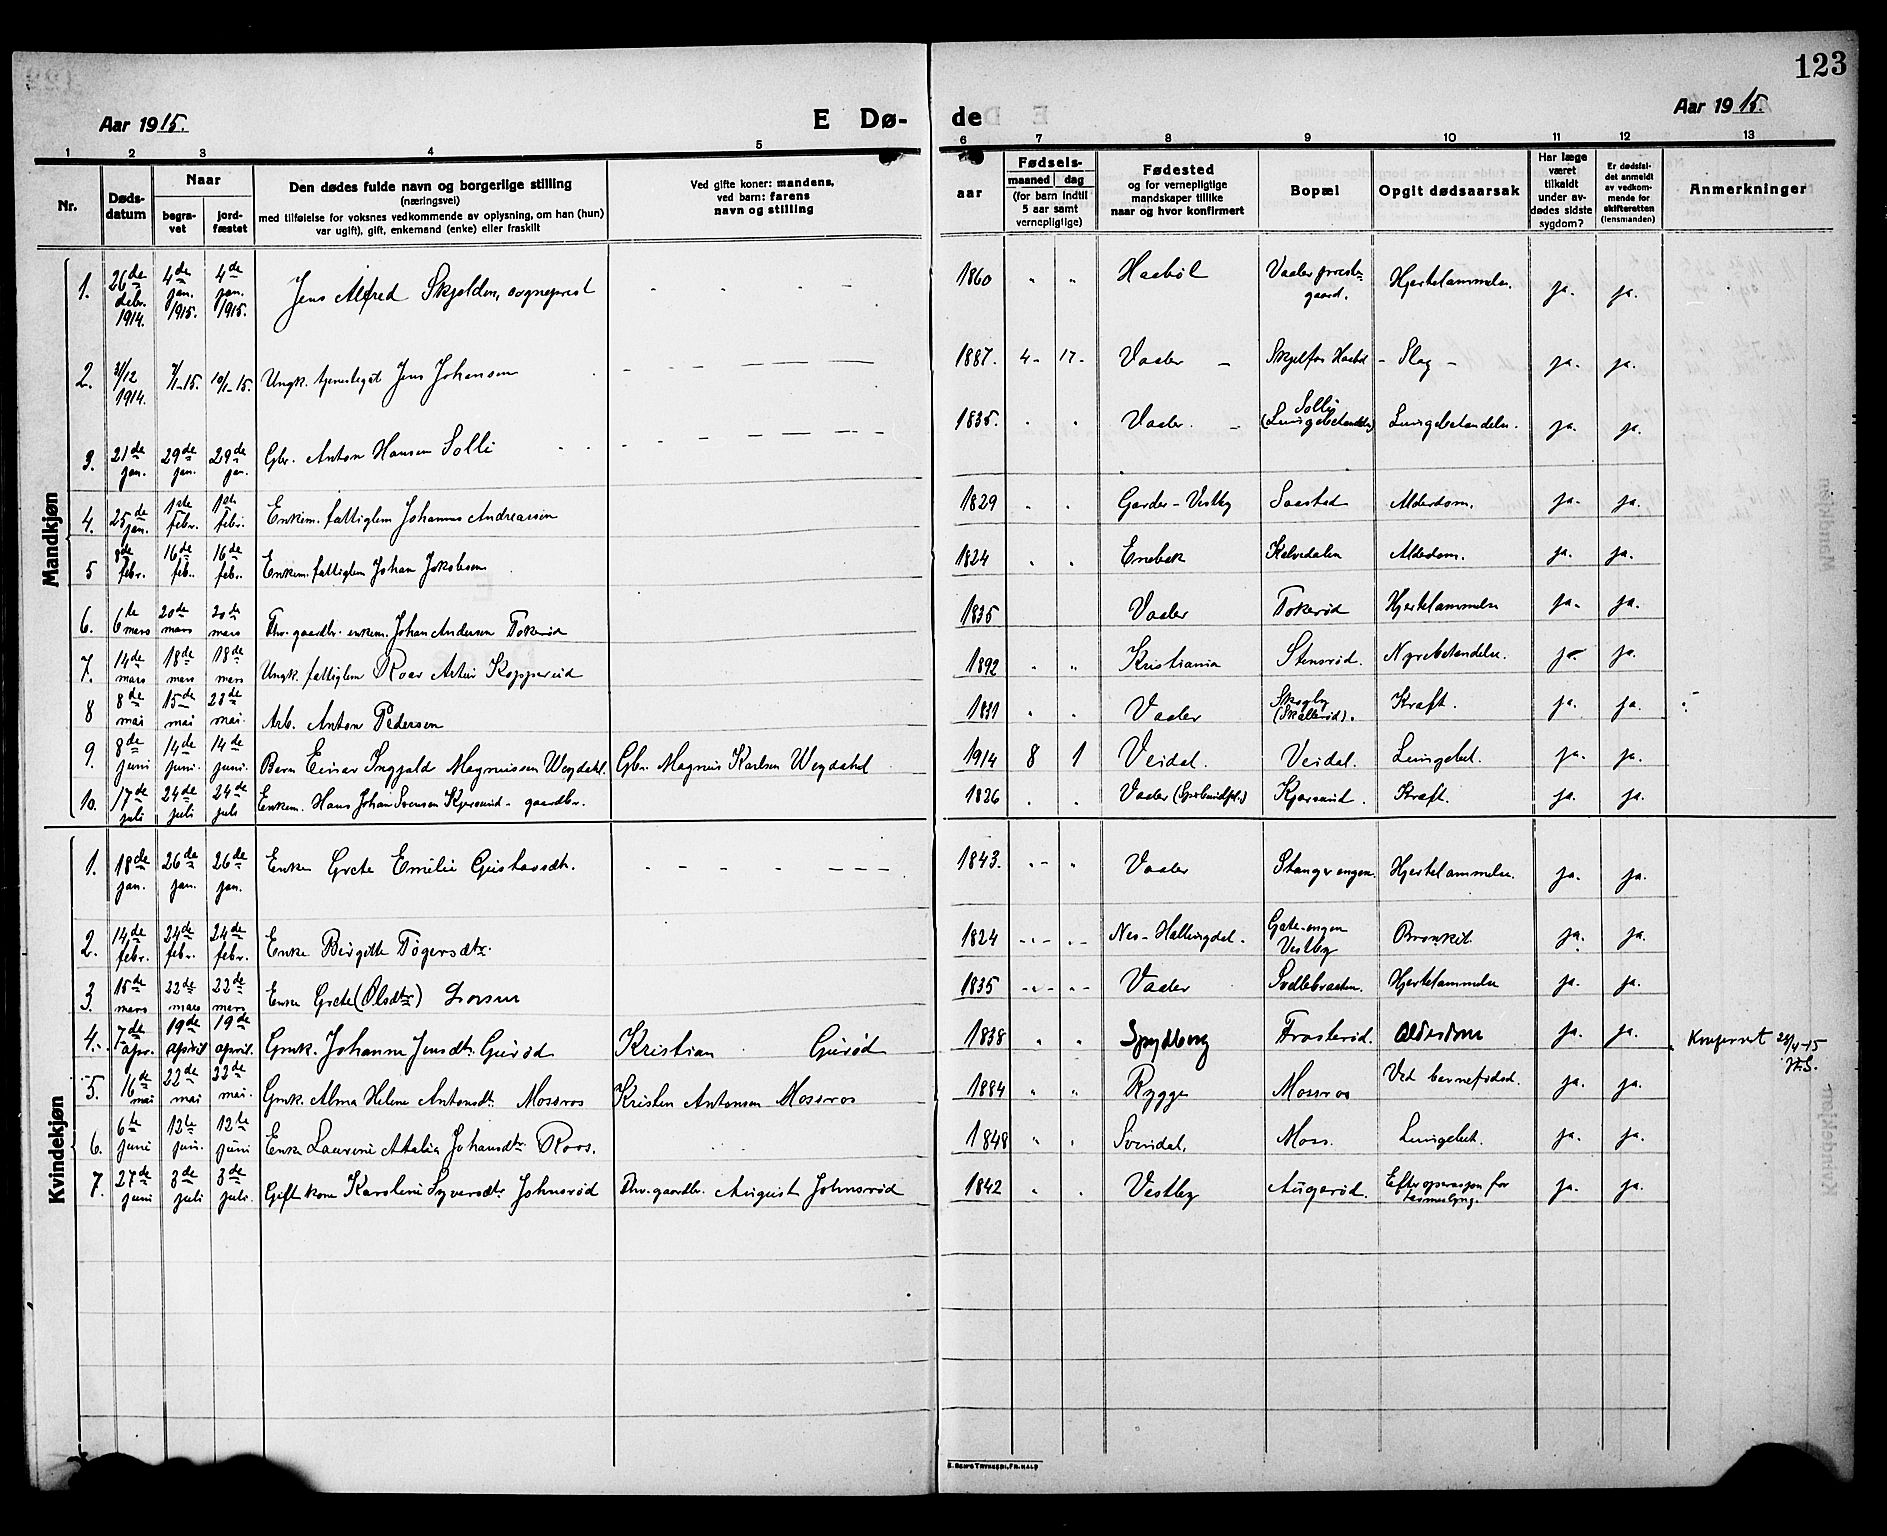 123
Aar 1915.
E Dø-
de
Aar 1915.
1 2 3 4 5 6 7 8 9 10 11 12 13
Nr.
Døds-
datum
Naar
begra-
vet
jord-
fæstet
Den dødes fulde navn og borgerlige stilling
(næringsvei)
med tilføielse for voksnes vedkommende av oplysning, om han (hun)
var ugift), gift, enkemand (enke) eller fraskilt
Ved gifte koner: mandens,
ved barn: farens
navn og stilling
aar
Fødsels-
maaned dag
(for barn indtil
5 aar samt
vernepligtige)
Fødested
og for vernepligtige
mandskaper tillike
naar og hvor konfirmert
Bopæl
Opgit dødsaarsak
Har læge
været
tilkaldt
under av-
dødes sidste
sygdom?
Er dødsfal-
det anmeldt
av vedkom-
mende for
skifteretten
(lensmanden)
Anmerkninger
Mandkjøn
1. 26de debr. 1914. 4de jan. 1915. 4de jan. 1915. Jens Alfred Skjelden, sogneprest 1860 " " Haabøl Vaaler preste-gaard. Hjertelammelse. ja. ja.
2. 31/12 1914. 7/1-15. 10/1-15. Ungk. tjenestegut Jens Johansen 1887. 4- 17- Vaaler - Skjelfos Haabøl - Slag - ja. ja.
3. 21de jan. 29de jan. 29de jan. Gbr. Anton Hansen Solli 1835. " " Vaaler. - Solli Lungebetændelse. ja. ja.
4. 25de jan. 1ste febr. 1ste febr. Enkem. fattiglem Johannes Andreassen 1829 " " Garder - Vestby Saastad Alderdom. ja. ja.
5 8de febr. 16de feb. 16de feb. Enkem. fattiglem Johan Jakobsen 1824 " " Enebak Kalvedalen Alderdom. ja. ja.
6. 6te mars 20de mars 20de mars Fhv. gaardbr. enkem. Johan Andersen Tokerød 1835 Vaaler Tokerød Hjertelammelse ja. ja.
7. 14de mars 18de mars 18de mars Ungk. fattiglem Roar Artur Kopperød 1892 " " Kristiania Stensrød. Nyrebetændelse. ja. ja.
8 8de mai 15de mai 23de mai. Arb. Anton Pedersen 1831 " " Vaaler Skogby (Skallerød). Kræft. ja. ja.
9. 8de juni 14de juni. 14de juni. Barn Einar Ingjald Magnussen Weydahl. Gbr. Magnus Karlsen Weydahl 1914 8 1 Veidal. Veidal. Lungebet. ja. ja.
10. 17de juli 24de juli 24de juli Enkem. Hans Johan Svensen Kjærsund - gaardbr. 1826 " " Vaaler Kjærsund. Kræft. ja. ja.
Kvindekjøn
1. 18de jan. 26de jan. 26de jan. Enke Grete Emilie Gustavsdtr. 1843. " - " Vaaler Stangerengen. Hjertelammelse. ja. ja.
2. 14de febr. 24de febr. 24de febr. Enke Birgitte Tøgersdtr. 1824 Nes - Hallingdal. Gate-engen Vestby Bronkit. ja. ja.
3. 15de mars 22de mars 22de mars Enke Grete (Olsdtr) Larsen 1835 Vaaler Svdlebraaten. Hjertelammelse ja. ja.
4. 7de apr. 19de april 19de april. Gmk. Johanne Jensdtr. Guirød Kristian Guirød 1838 " " Spydberg Frosterød. Alderdom ja. ja. Konferert 28/4-15
5. 16de mai 22de mai 22de mai. Gmk. Alma Helene Antonsdtr. Mossros Kristen Antonsen Mossros 1884 " " Rygge Mossros Ved barnefødsel. ja. ja.
6. 6te juni 12te juni. 12te juni Enke Laurine Atalia Johansdtr. Roos. 1848 " " Svindal. Moss. Lungebet. ja. ja.
7. 27de juni 3de juli 3de juli. Gift kone Karoline Syversdtr. Johnsrød Fhv. gaardbr. August Johnsrød 1842 " " Vestby Augerød. Efter operasjon for tarmslyng. ja. ja.